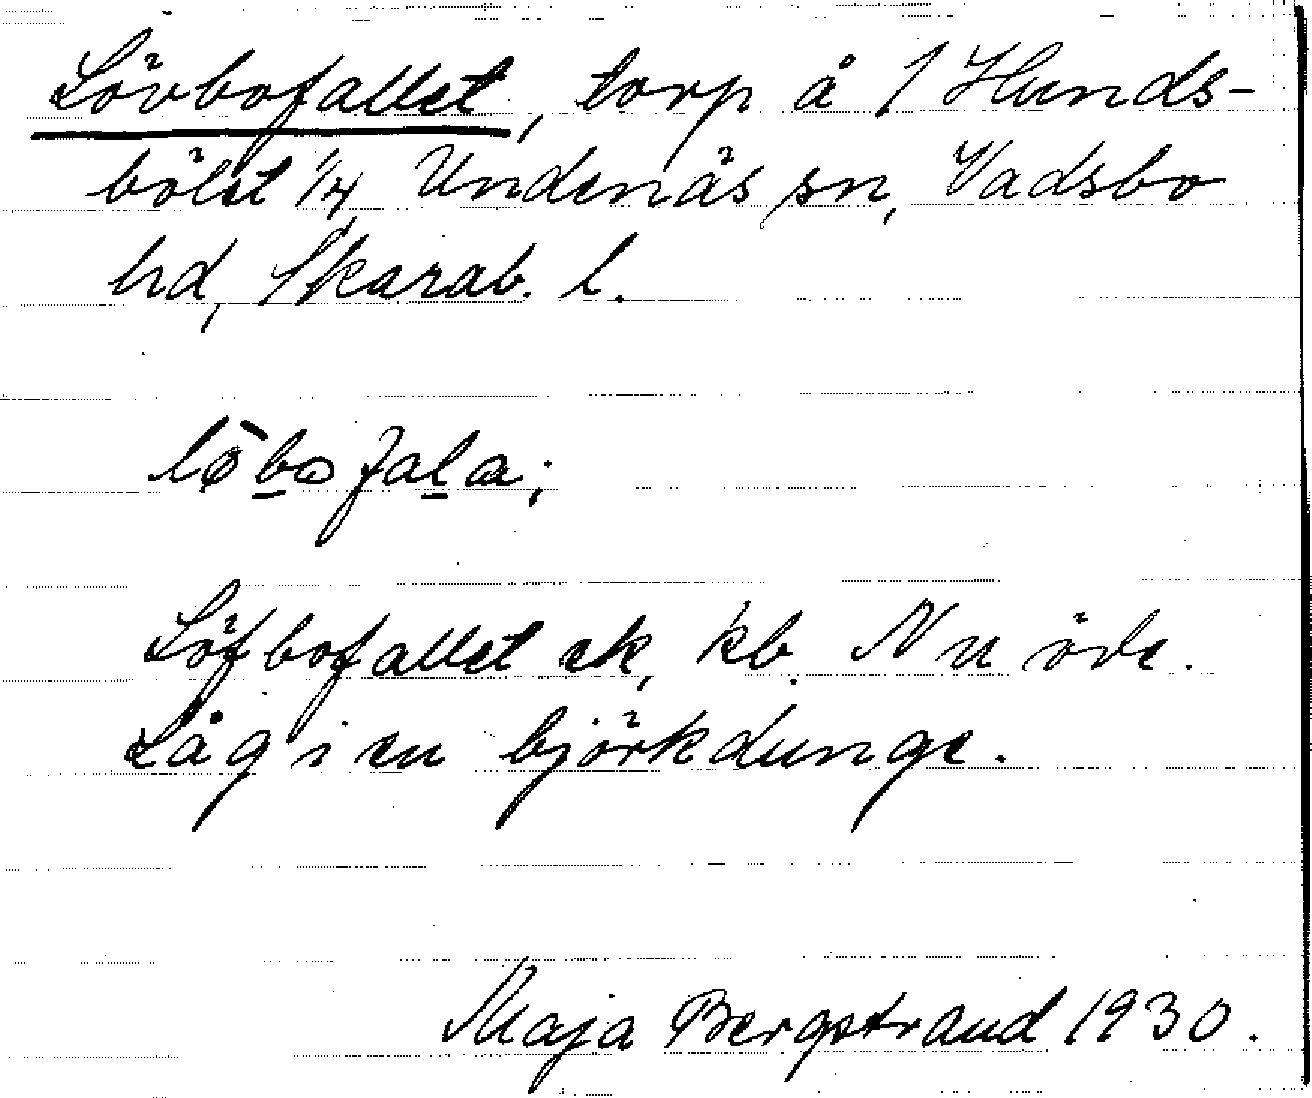 Lövbofallet, torp å / Hunds-
bölet 1/4, Undenäs sn, Vadsbo
hd, Skarab. l.
löbofala;
Löfbofallet ek, kb. Nu öde.
Låg i en björkdunge.
Maja Bergstrand 1930.